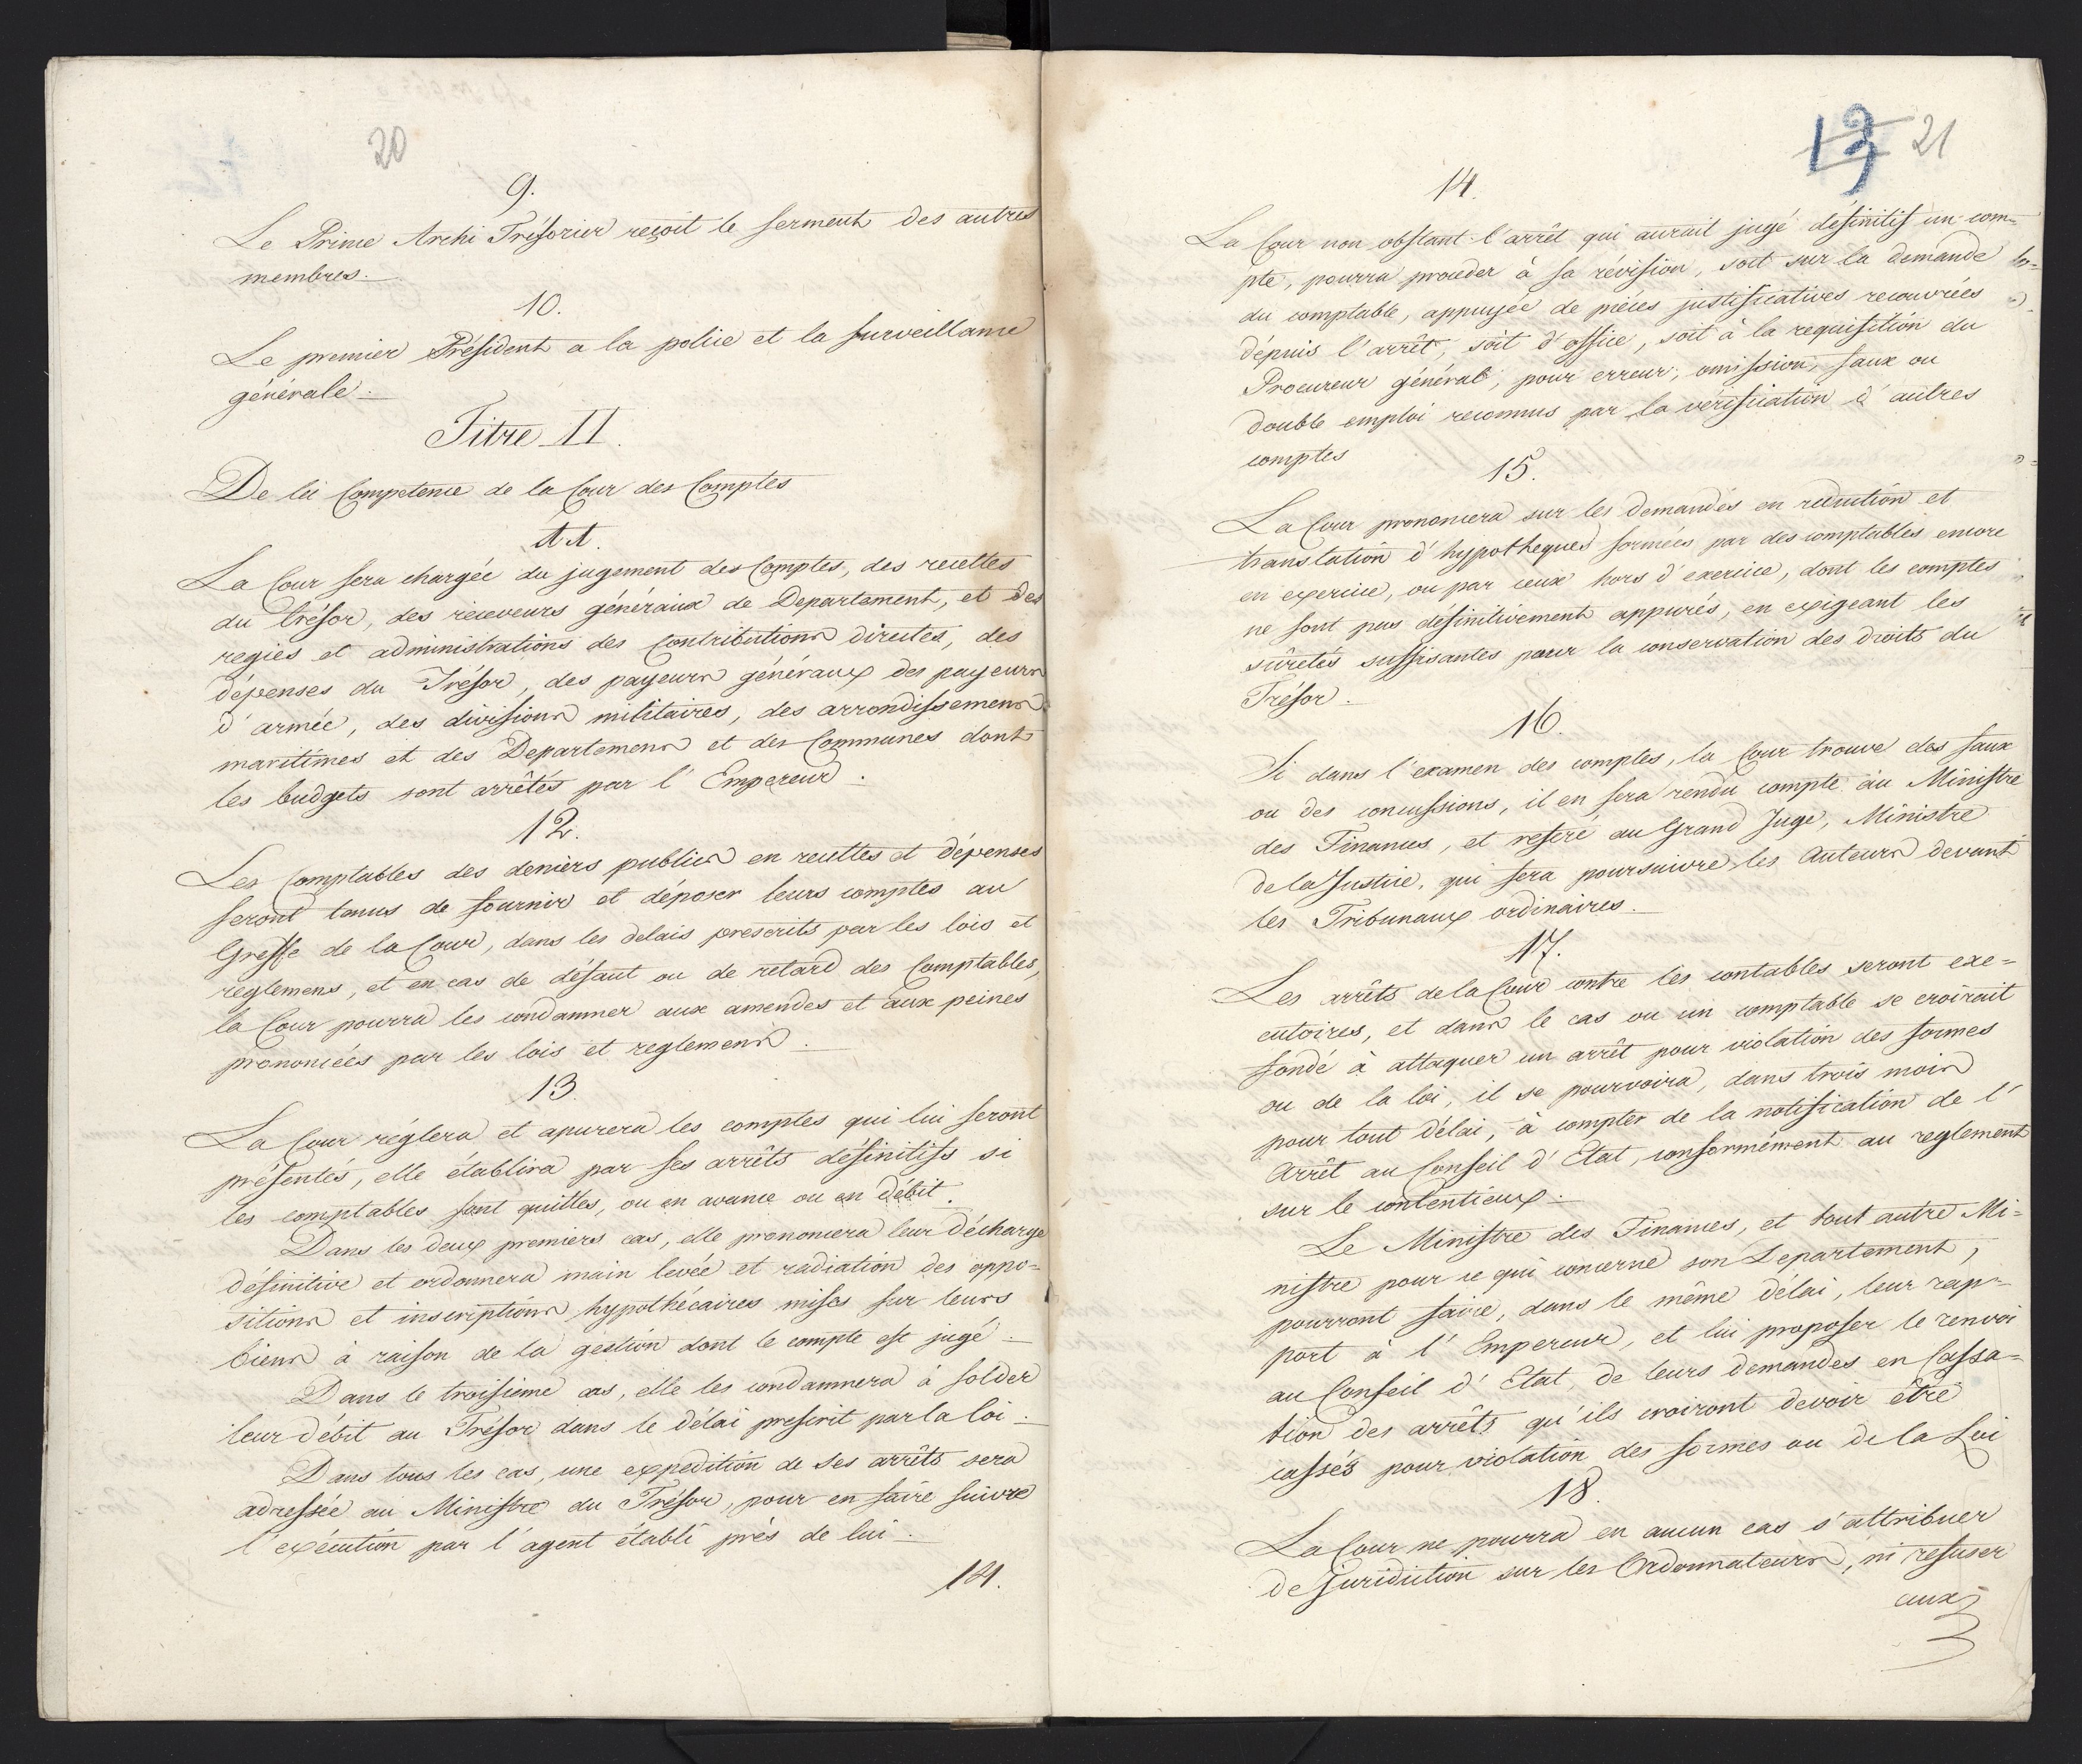 20
9.
Le Prince Archi Trésorier reçoit le serment des autres
membres.
10.
Le premier Président a la police et la surveillance
générale.
Titre II.
De la Competence de la Cour des Comptes
11.
La Cour sera chargée du jugement des Comptes, des recettes
du trésor, des receveurs généraux de Departement, et des
regies et administrations des Contributions directes, des
dépenses du Trésor, des payeurs généraux des payeurs
d'armée, des divisions militaires, des arrondissemens
maritimes et des Departemens et des Communes dont
les budgets sont arrêtés par l'Empereur.
12.
Les Comptables des deniers publics en recettes et dépenses
seront tenus de fournir et déposer leurs comptes au
Greffe de la Cour, dans les delais prescrits par les lois et
reglemens, et en cas de défaut ou de retard des Comptables,
la Cour pourra les condamner aux amendes et aux peines
prononcées par les lois et reglemens.
13.
La Cour réglera et apurera les comptes qui lui seront
présentés, elle établira par ses arrêts définitifs si
les comptables sont quittes, ou en avance ou en débit.
Dans les deux premiers cas, elle prononcera leur décharge
définitive et ordonnera main levée et radiation des oppo=
sitions et inscriptions hypothécaires mises sur leurs
biens à raison de la gestion dont le compte est jugé.
Dans le troisieme cas, elle les condamnera à solder
leur débit au Trésor dans le délai prescrit par la loi.
Dans tous les cas, une expedition de ses arrêts sera
adressée au Ministre du Trésor, pour en faire suivre
l'exécution par l'agent établi près de lui.
14.
13 21
14.
La Cour non obstant l'arrêt qui aurait jugé définitif un com=
pte, pourra proceder à sa révision, soit sur la demande
du comptable, appuyée de piéces justificatives recouvrées
dépuis l'arrêt, soit d'office, soit à la requisition du
Procureur général, pour erreur, omission, faux ou
double emploi reconnus par la verification d'autres
comptes
15.
La Cour prononcera sur les demandes en reduction et
translation d'hypotheques formées par des comptables encore
en exercice, ou par ceux hors d'exercice, dont les comptes
ne sont pas définitivement appurés, en exigeant les
sûretés suffisantes pour la conservation des droits du
Trésor.
16.
Si dans l'examen des comptes, la Cour trouve des faux
ou des concussions, il en sera rendu compte au Ministre
des Finances, et referé au Grand Juge, Ministre
de la Justice, qui fera poursuivre les Auteurs devant
les Tribunaux ordinaires.
17.
Les arrêts de la Cour contre les contables seront exe=
cutoires, et dans le cas ou un comptable se croirait
fondé à attaquer un arrêt pour violation des formes
ou de la loi, il se pourvoira, dans trois mois
pour tout délai, à compter de la notification de l'
Arrêt au Conseil d'Etat, conformément au reglement
sur le contentieux.
Le Ministre des Finances, et tout autre Mi=
nistre pour ce qui concerne son Departement,
pourront faire, dans le même délai, leur rap=
port à l'Empereur, et lui proposer le renvoi
au Conseil d'Etat, de leurs demandes en Cassa=
tion des arrêts qu'ils croiront devoir être
cassés pour violation des formes ou de la Loi
18.
La Cour ne pourra en aucun cas s'attribuer
de Juridiction sur les Ordonnateurs, ni refuser
aux